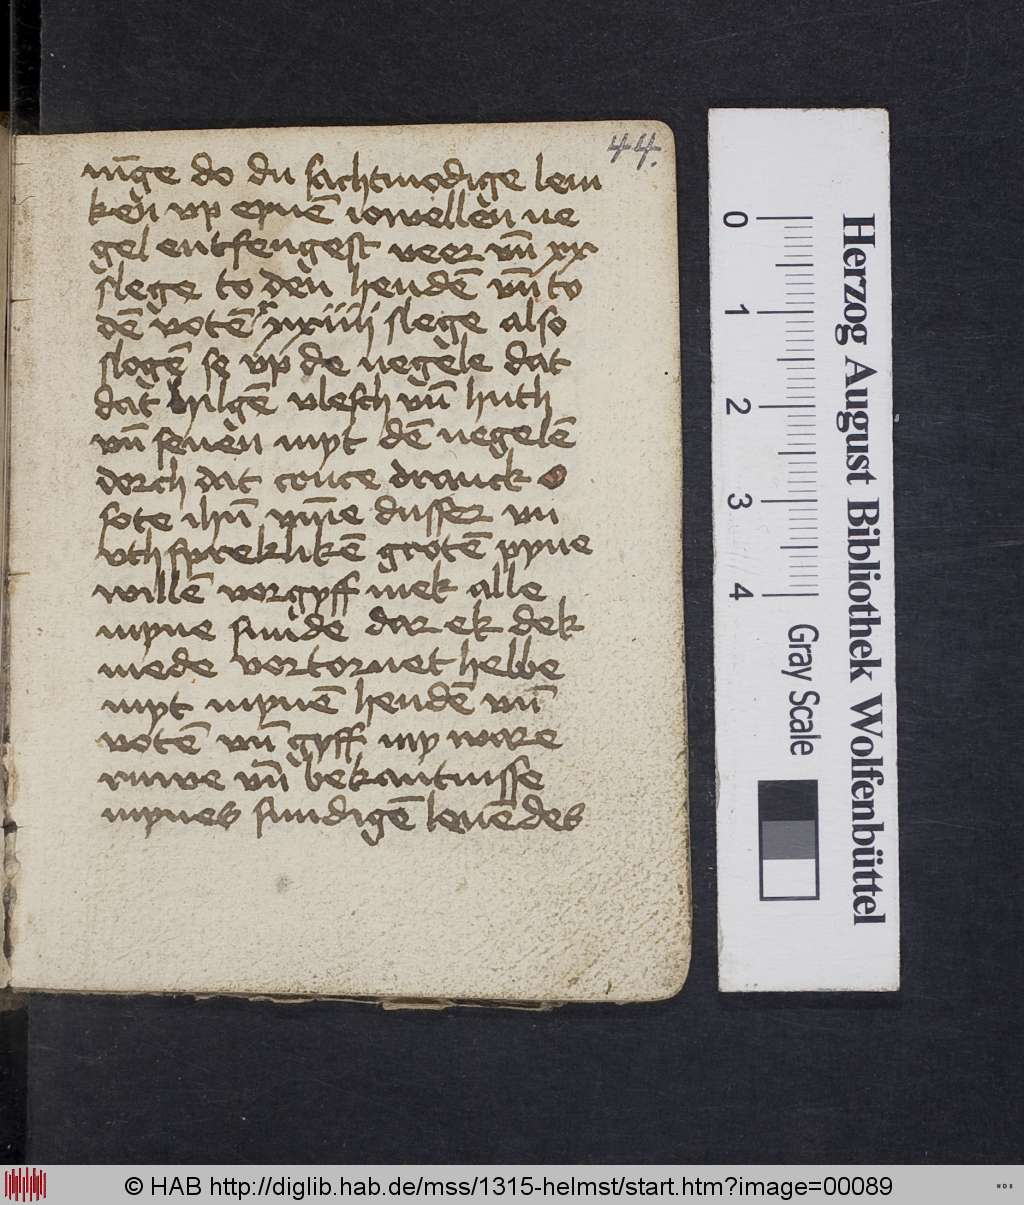 44.
nīge do du sachtmodige lem
ken vp eynē iowelken ne
gel entfengest veer vn̄ xx
slege to den hendē vn̄ to
dē votē xxiiii slege also
slogē se vp de negele dat
dat hilgē vlesch vn̄ huth
vn̄ senen myt dē negelē
dorch dat cruce dranck o
sote ihū vm̄e dusser vn
vthsprekliken grotē pyne
willē vorgyff mek alle
myne sunde dar ek dek
mede vortornet hebbe
myt mynē hendē vn̄
votē vn̄ gyff my ware
ruwe vn̄ bekantnisse
mynes sundigē leuēdes
Herzog August Bibliothek Wolfenbüttel
0 1 2 3 4
Gray Scale
© HAB http://diglib.hab.de/mss/1315-helmst/start.htm?image=00089